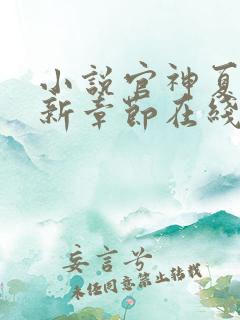 小说官神夏
新章节在线
妄言兮
未经同意禁止转载